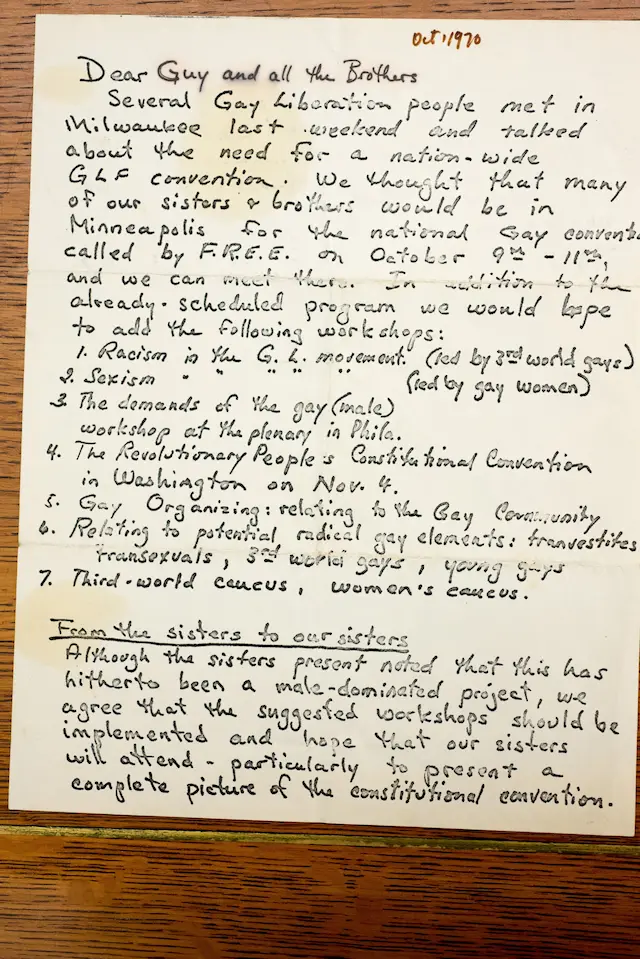 Oct 1, 1970
Dear Guy and all the Brothers
Several Gay Liberation people met in
Milwaukee last weekend and talked
about the need for a nation-wide
GLF convention. We thought that many
of our sisters & brothers would be in
Minneapolis for the national Gay conventi
called by F.R.E.E. on October 9th - 11th,
and we can meet there. In addition to the
already-scheduled program we would hope
to add the following workshops:
1. Racism in the G. L. movement. (led by 3rd world gays)
2. Sexism " " " " " (led by gay women)
3. The demands of the gay (male)
workshop at the plenary in Phila.
4. The Revolutionary People's Constitutional Convention
in Washington on Nov. 4.
5. Gay Organizing: relating to the Gay Community
6. Relating to potential radical gay elements: tranvestites
transexuals, 3rd world gays, young gays
7. Third-world caucus, women's caucus.
From the sisters to our sisters
Although the sisters present noted that this has
hitherto been a male-dominated project, we
agree that the suggested workshops should be
implemented and hope that our sisters
will attend - particularly to present a
complete picture of the constitutional convention.